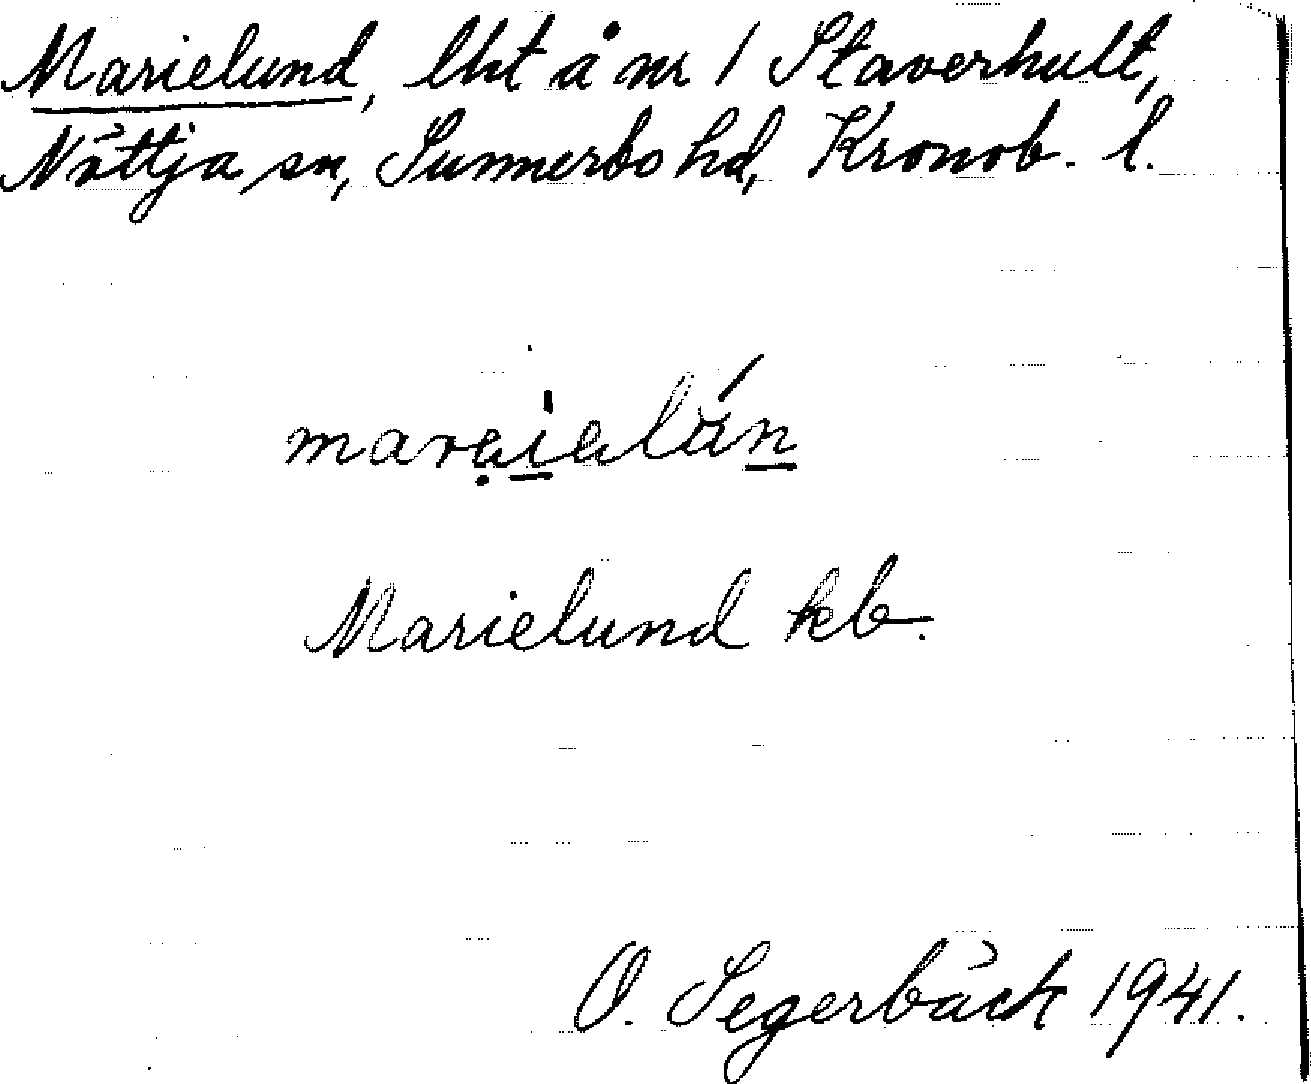 Marielund, lht å nr 1 Staverhult,
Nöttja sn, Sunnerbo hd, Kronob. l.
Marielund kb.
O. Segerbäck 1941.